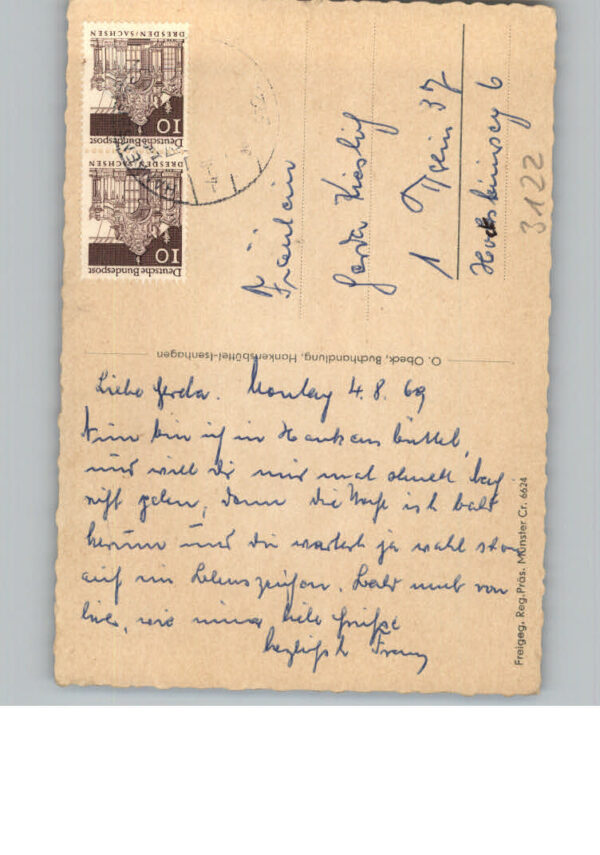 Liebe Gerda. Montag 4. 8. 69
Nun bin ich in Hankensbüttel,
und will dir nur mal schnell
geben, denn die Woche ist bald
herum und du wartest ja wohl schon
auf ein Lebenszeichen. Bald mehr von
hier, wie immer viele Grüße
herzlichst Franz
Fräulein
Gerda
1 Berlin 37
6
3122
O. Obeck, Buchhandlung, Hankensbüttel-Isenhagen
Freigeg. Reg. Präs. Münster Cr. 6624
10
Deutsche Bundespost
DRESDEN/SACHSEN
10
Deutsche Bundespost
DRESDEN/SACHSEN